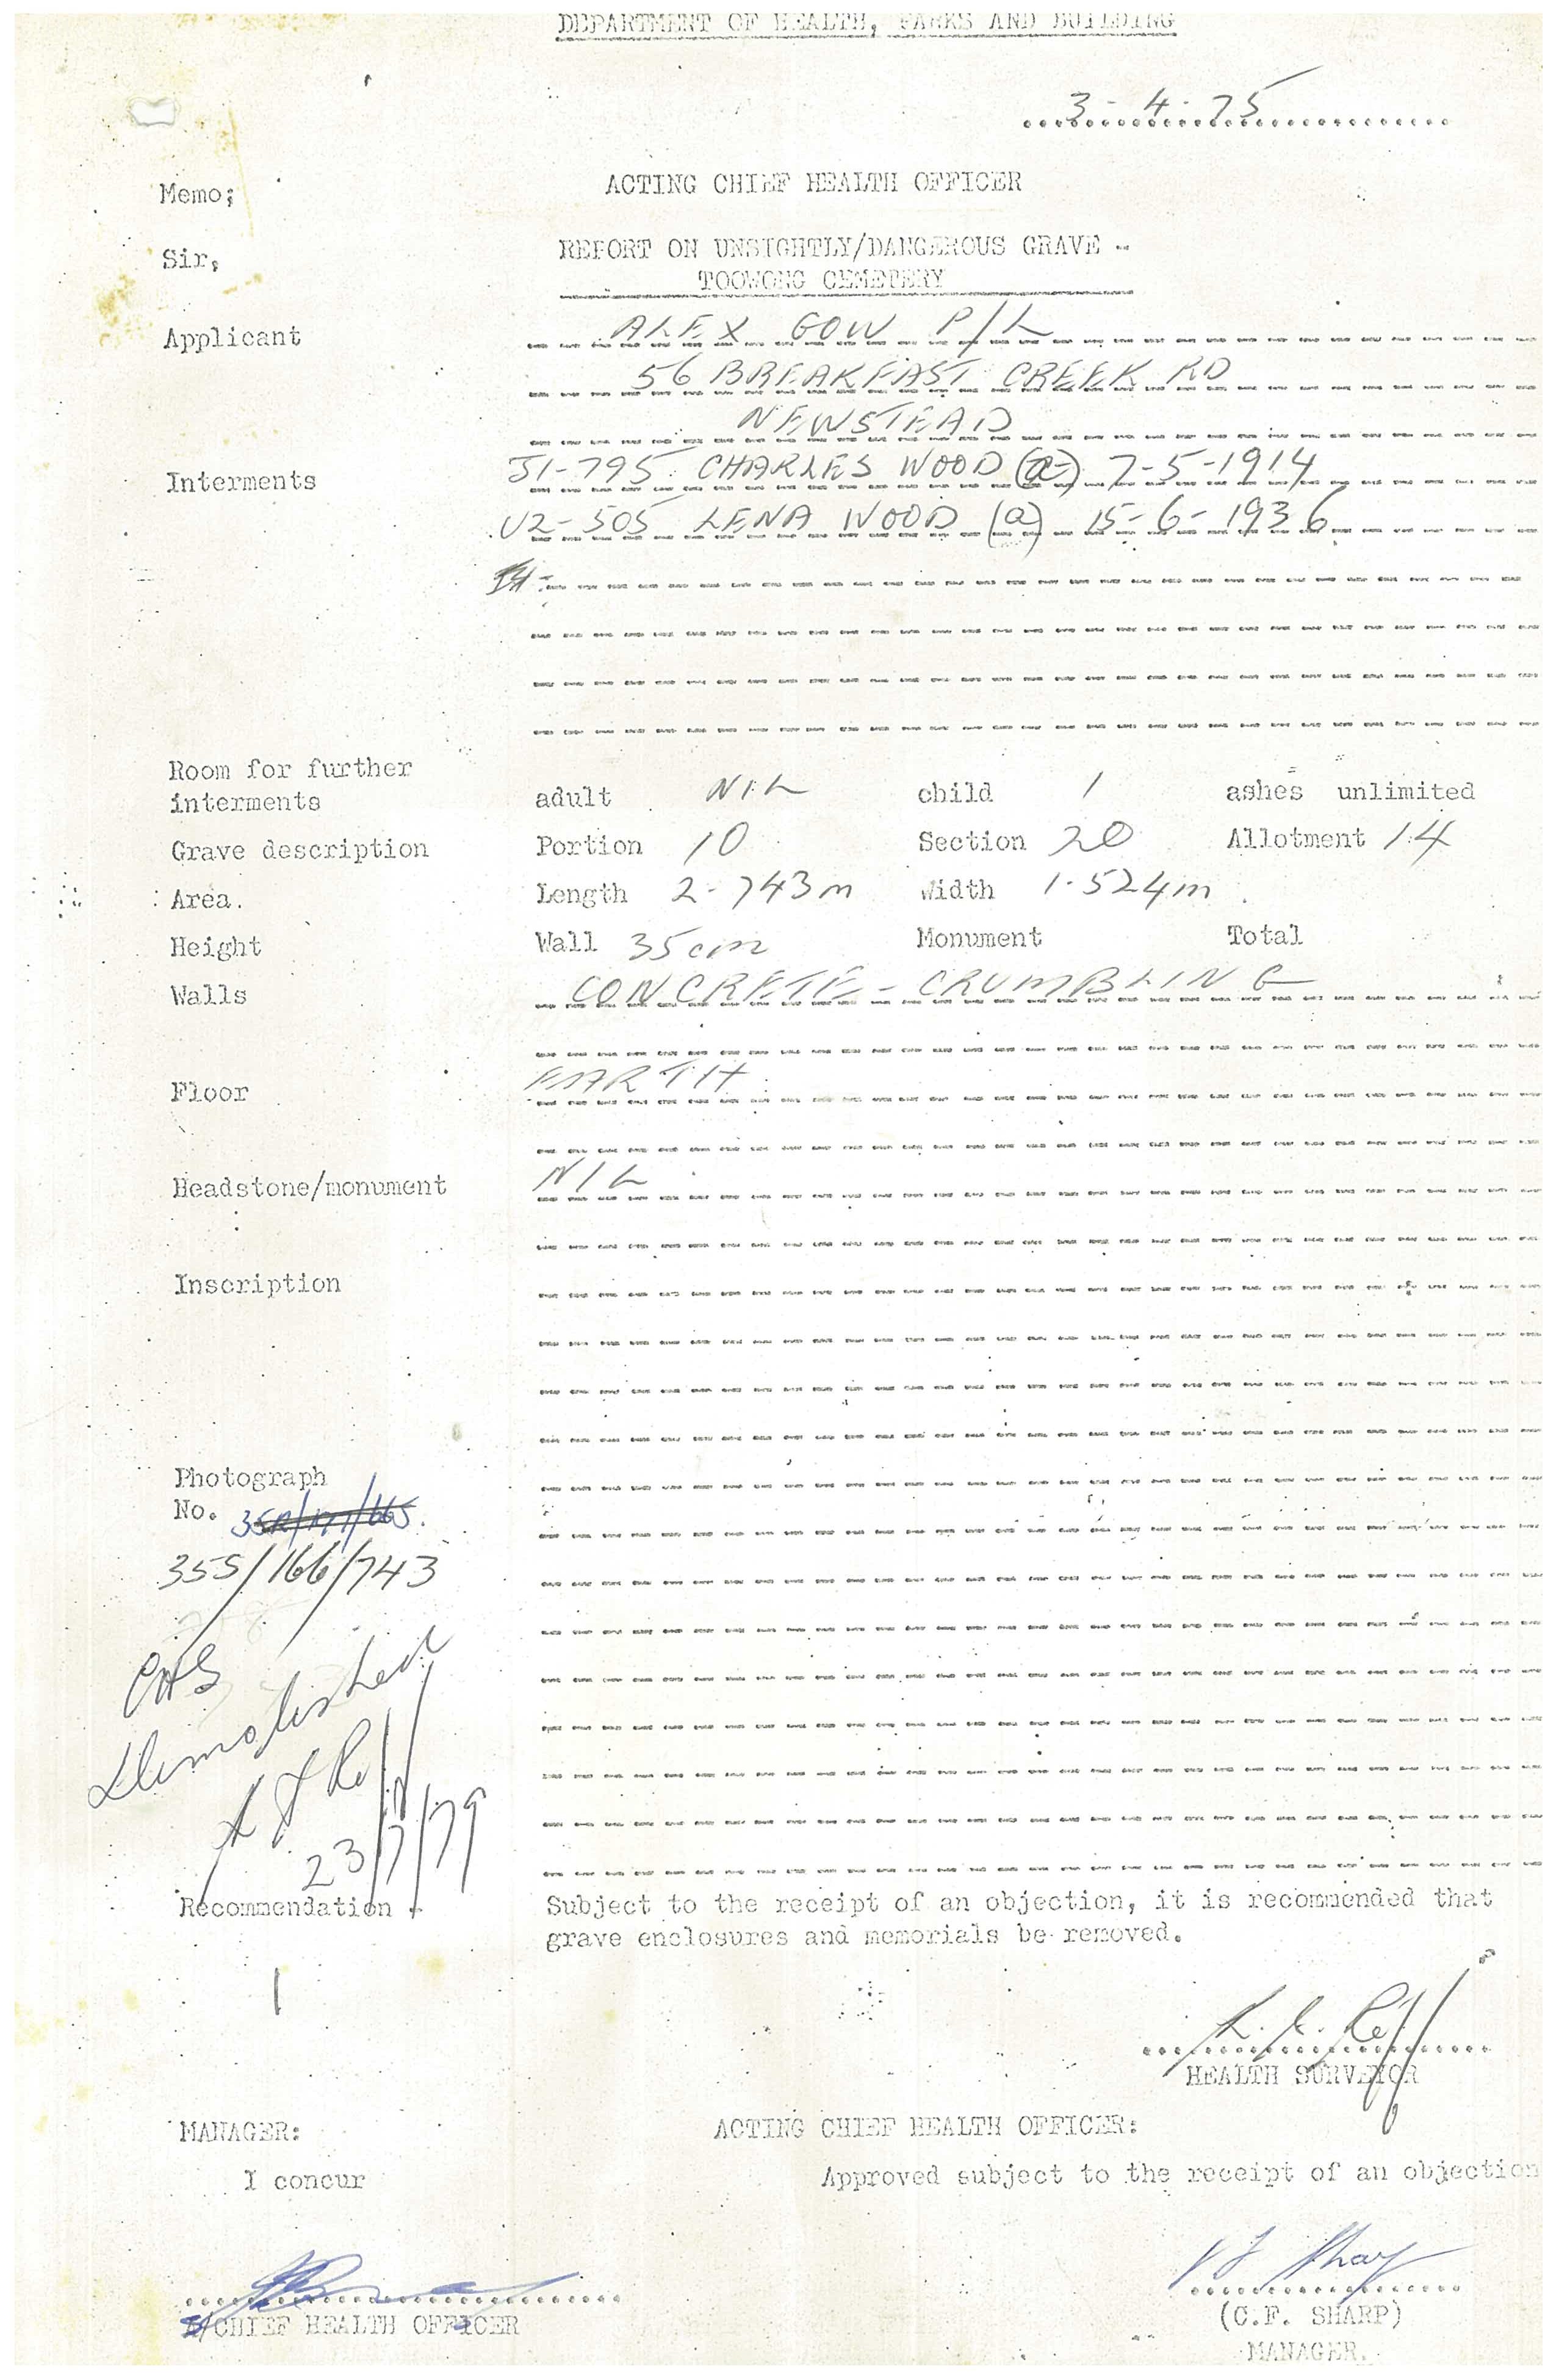 DEPARTMENT OF HEALTH, PARKS AND BUILDING
3-4-75
Memo; ACTING CHIEF HEALTH OFFICER
Sir, REPORT ON UNSIGHTLY/DANGEROUS GRAVE -
TOOWONG CEMETERY
Applicant ALEX GOW P/L
56 BREAKFAST CREEK RD
NEWSTEAD
Interments J1-795 CHARLES WOOD (a) 7-5-1914
U2-505 LENA WOOD (a) 15-6-1936
Room for further
interments adult NIL child 1 ashes unlimited
Grave description Portion 10 Section 20 Allotment 14
Area. Length 2.743m Width 1.524m
Height Wall 35cm Monument Total
Walls CONCRETE - CRUMBLING
Floor EARTH
Headstone/monument NIL
Inscription
Photograph
No.
355/166/743
CHS
Demolished
23/7/79
Recommendation - Subject to the receipt of an objection, it is recommended that
grave enclosures and memorials be removed.
HEALTH SURVEYOR
MANAGER: ACTING CHIEF HEALTH OFFICER:
I concur Approved subject to the receipt of an objection
/CHIEF HEALTH OFFICER (C.F. SHARP)
MANAGER.